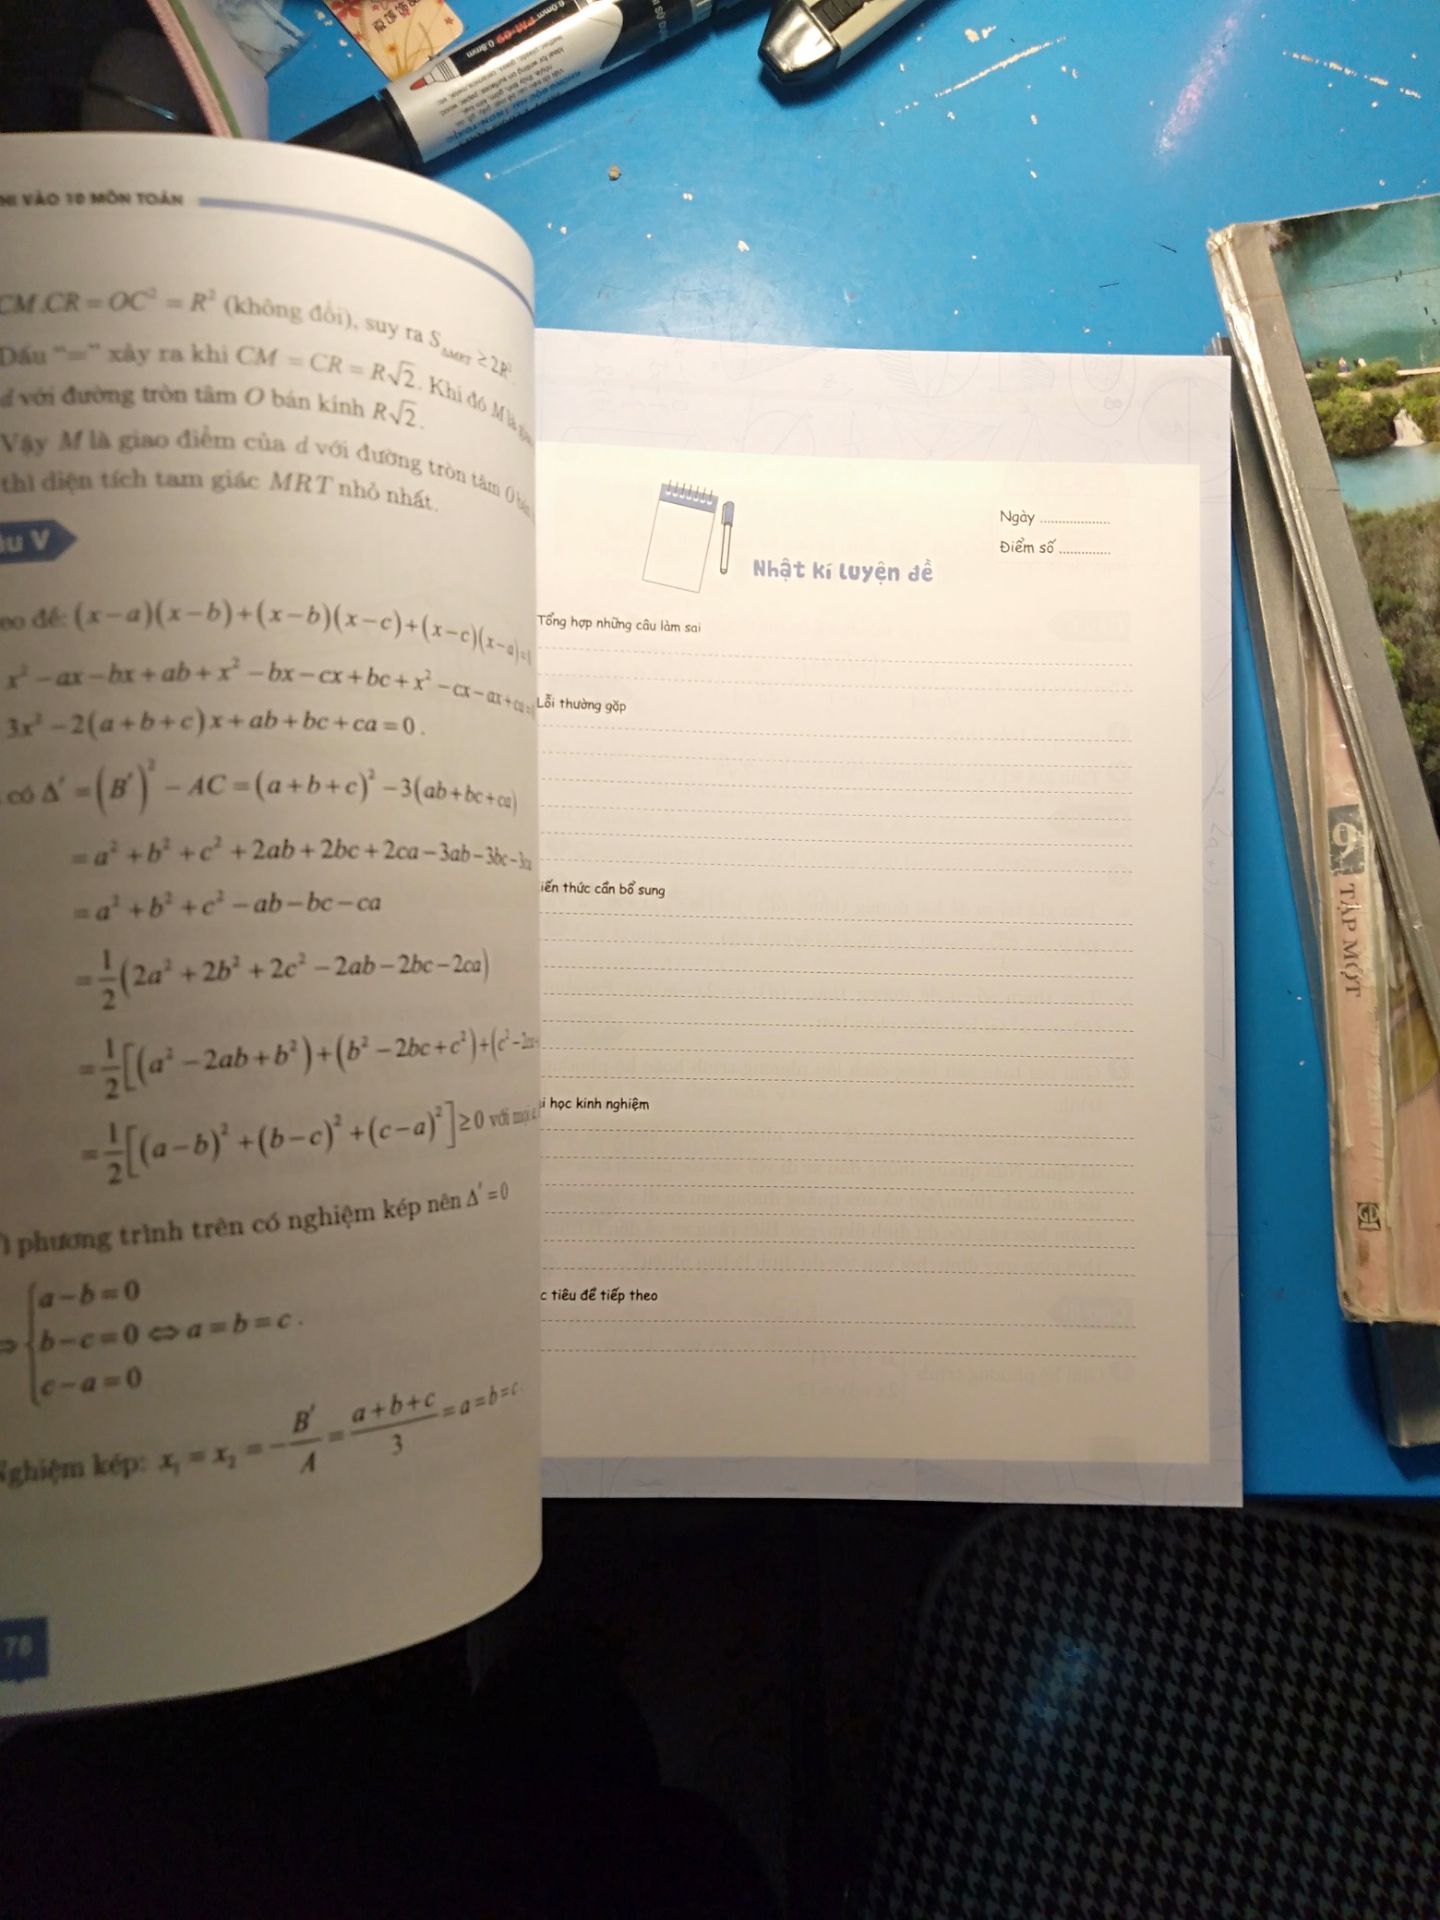 VÀO 10 MÔN TOÁN
CM.CR = OC² = R² (không đổi), suy ra S_ΔMRT ≥ 2R².
Dấu "=" xảy ra khi CM = CR = R√2. Khi đó M là
d với đường tròn tâm O bán kính R√2.
Vậy M là giao điểm của d với đường tròn tâm O
thì diện tích tam giác MRT nhỏ nhất.
V
đề: (x−a)(x−b)+(x−b)(x−c)+(x−c)(x−a)=
x² −ax−bx+ab+x² −bx−cx+bc+x² −cx−ax+ca=
3x² −2(a+b+c)x+ab+bc+ca=0.
có Δ' =(B')² −AC=(a+b+c)² −3(ab+bc+ca)
=a² +b² +c² +2ab+2bc+2ca−3ab−3bc−3ca
=a² +b² +c² −ab−bc−ca
=1/2(2a² +2b² +2c² −2ab−2bc−2ca)
=1/2[(a² −2ab+b²)+(b² −2bc+c²)+(c² −2ca+
=1/2[(a−b)² +(b−c)² +(c−a)²]≥0 với mọi
phương trình trên có nghiệm kép nên Δ' =0
a−b=0
⇒ b−c=0 ⇔ a=b=c.
c−a=0
Nghiệm kép: x₁ = x₂ = −B'/A = (a+b+c)/3 = a=b=c.
78
Ngày
Điểm số
Nhật kí luyện đề
Tổng hợp những câu làm sai
Lỗi thường gặp
iến thức cần bổ sung
i học kinh nghiệm
c tiêu đề tiếp theo
9
TẬP MỘT
GD
PM-09 0.8mm